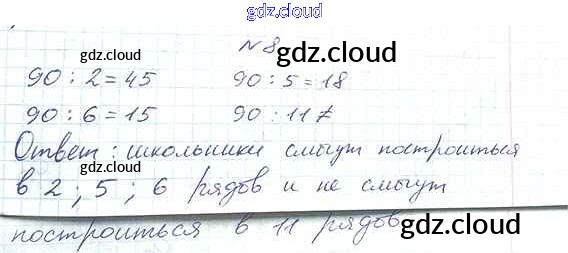 gdz.cloud
№8
gdz.cloud
gdz.cloud
90 : 2 = 45 90 : 5 = 18
90 : 6 = 15 90 : 11 ≠
gdz.cloud gdz.cloud
Ответ: школьники смогут построиться
gdz.cloud
в 2 ; 5 ; 6 рядов и не смогут
построиться в 11 рядов
gdz.cloud